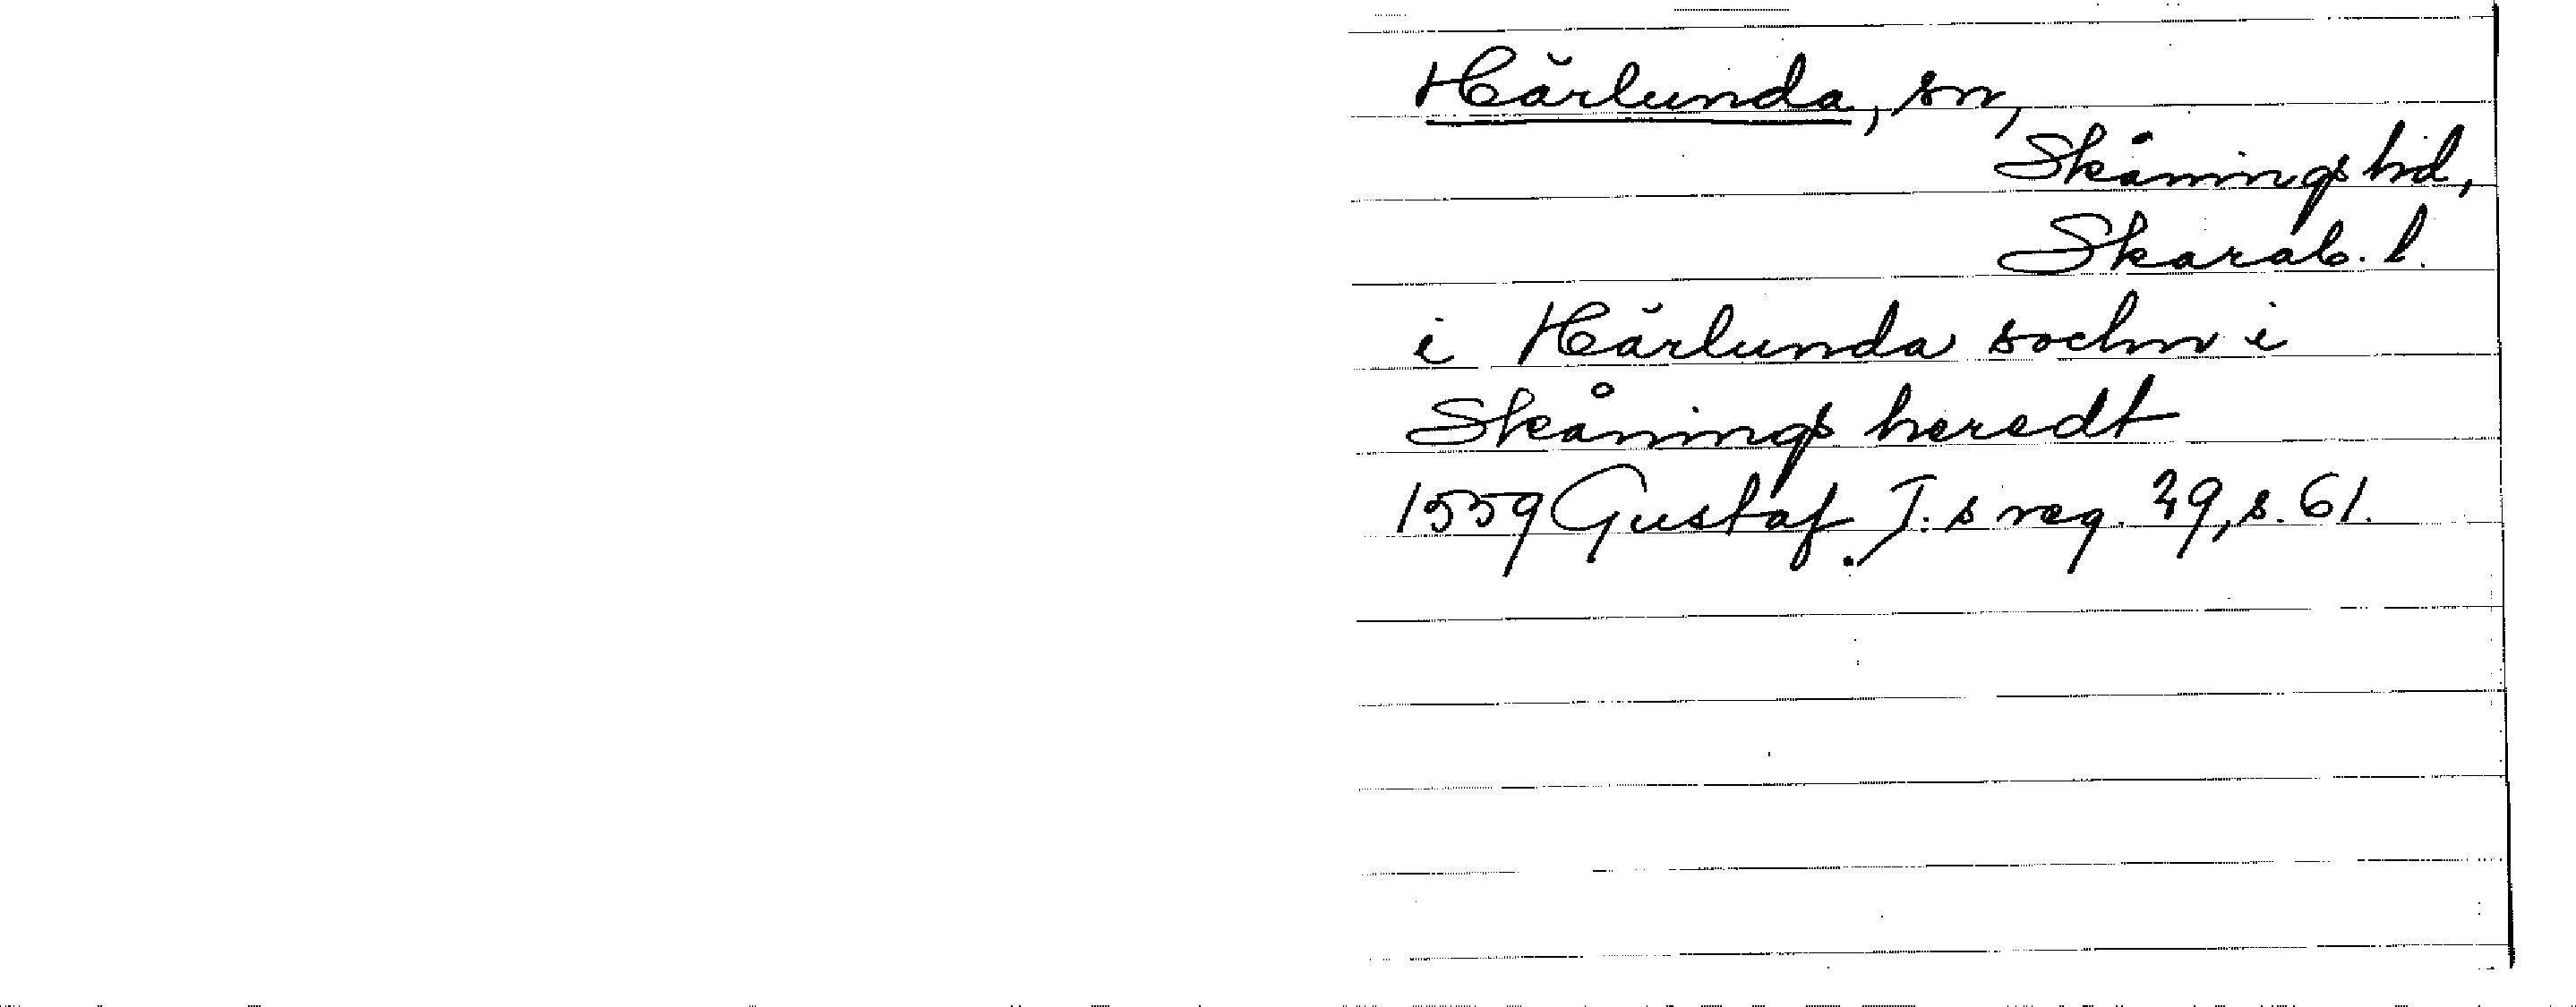 Härlunda, sn,
Skånings hd,
Skarab. l.
i Härlunda sochn i
Skånings heredt
1559 Gustaf I:s reg. 29, s. 61.